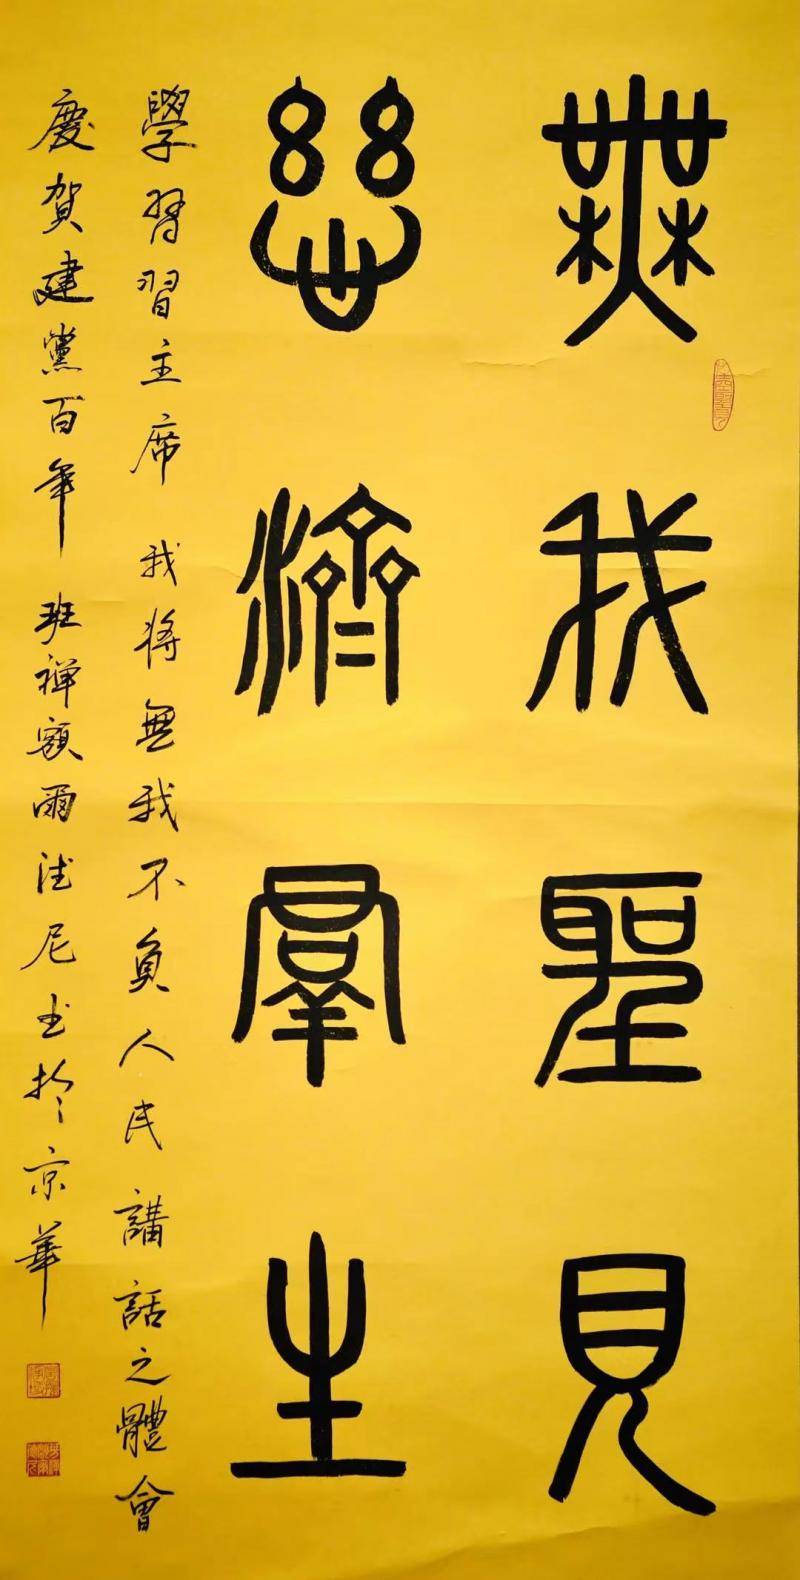 無我聖見
慈濟羣生
學習習主席 我將無我不負人民 講話之體會
慶賀建黨百年 班禪額爾德尼书於京華